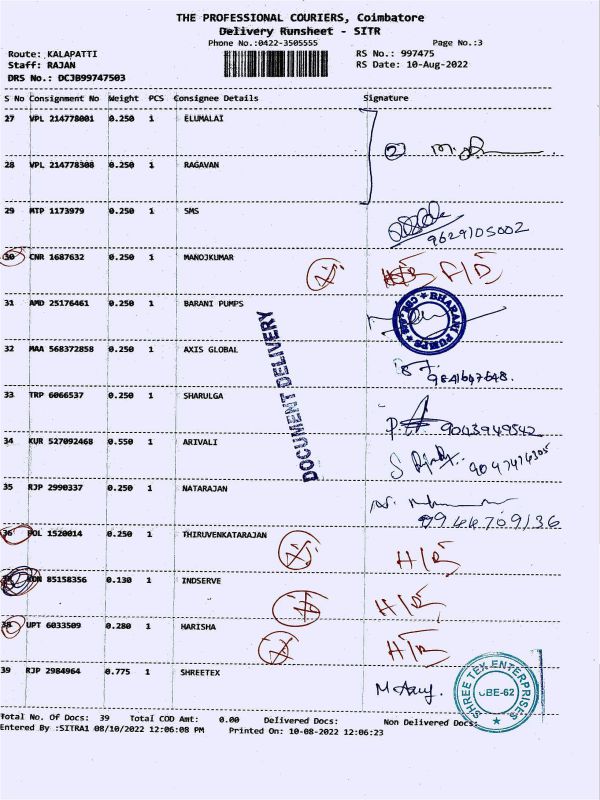 THE PROFESSIONAL COURIERS, Coimbatore
Delivery Runsheet - SITR
Phone No.:0422-3505555 Page No.:3
Route: KALAPATTI RS No.: 997475
Staff: RAJAN RS Date: 10-Aug-2022
DRS No.: DCJB99747503
S No Consignment No Weight PCS Consignee Details Signature
27 VPL 214778001 0.250 1 ELUMALAI
28 VPL 214778308 0.250 1 RAGAVAN
29 MTP 1173979 0.250 1 SMS
9629105002
30 CNR 1687632 0.250 1 MANOJKUMAR F/D
31 AMD 25176461 0.250 1 BARANI PUMPS
BHARANI PUMPS
32 MAA 568372858 0.250 1 AXIS GLOBAL
9841647648.
DOCUMENT DELIVERY
33 TRP 6066537 0.250 1 SHARULGA
9043949542
34 KUR 527092468 0.550 1 ARIVALI
35 RJP 2990337 0.250 1 NATARAJAN
9944709136
36 POL 1520014 0.250 1 THIRUVENKATARAJAN
85158356 0.130 1 INDSERVE
38 UPT 6033509 0.280 1 HARISHA
39 RJP 2984964 0.775 1 SHREETEX
SHREE TEX ENTERPRISES
CBE-62
Total No. Of Docs: 39 Total COD Amt: 0.00 Delivered Docs: Non Delivered Docs:
Entered By :SITRA1 08/10/2022 12:06:08 PM Printed On: 10-08-2022 12:06:23